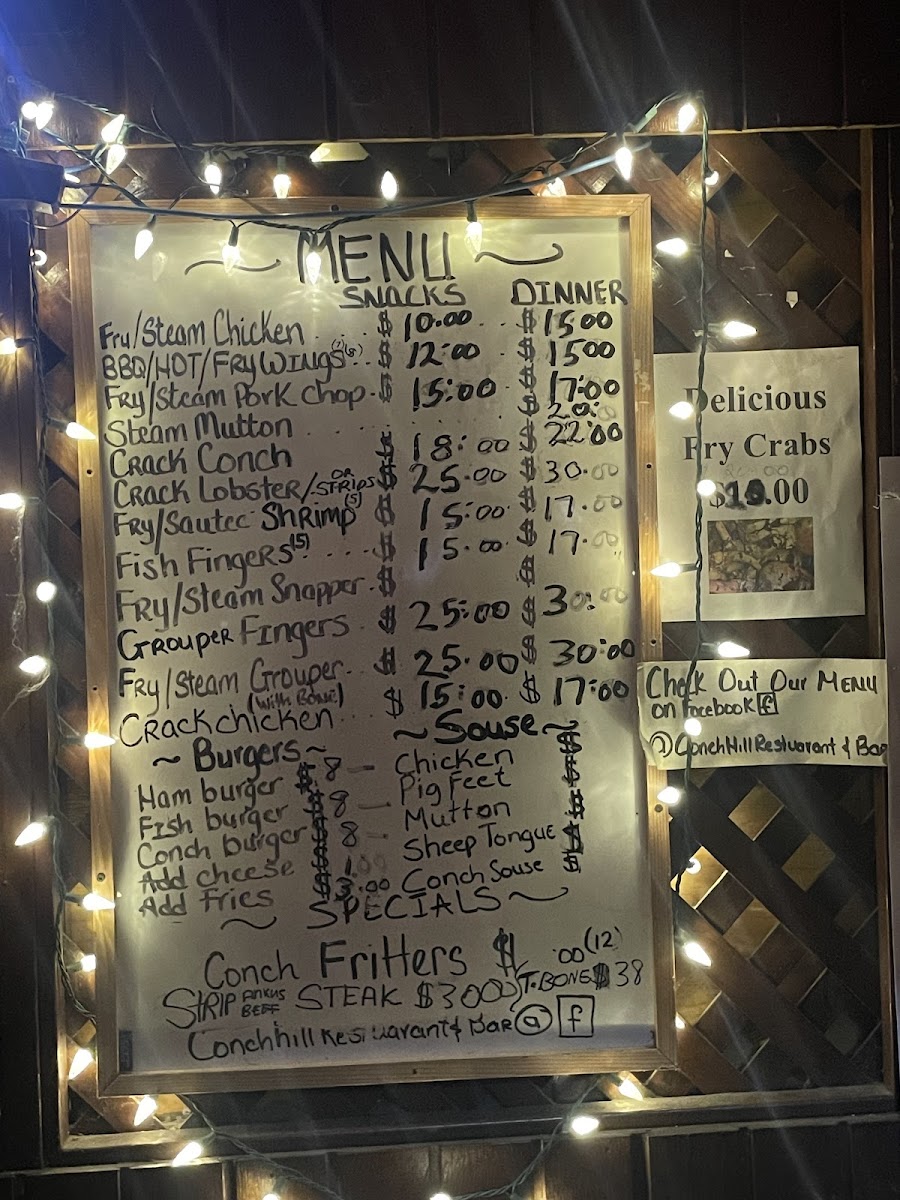 MENU
SNACKS DINNER
Fry/Steam Chicken $ 10.00 $ 15 00
BBQ/HOT/FRY WINGS $ 12:00 $ 15 00
Fry/Steam Pork Chop $ 15:00 $ 17:00
Steam Mutton $ 20:
Crack Conch $ 18:00 $ 22:00
Crack Lobster/OR STRIPS $ 25.00 $ 30.00
Fry/Sautee Shrimp (5) $ 15:00 $ 17.00
Fish Fingers (5) $ 15.00 $ 17.00
FRY/Steam Snapper $ $
GROUPER Fingers $ 25:00 $ 30:00
Fry/Steam Grouper $ 25.00 $ 30:00
(With Bone)
Crack chicken $ 15:00 $ 17:00
~ Burgers ~ ~ Souse ~
Ham burger $ 8 Chicken $
Fish burger $ 8 Pig Feet $
Conch burger $ 8 Mutton $
Add cheese $ 1.00 Sheep Tongue $
Add fries $ 3.00 Conch Souse $
~ SPECIALS ~
Conch Fritters $ .00 (12)
STRIP ANKUS BEEF STEAK $30 00 T-BONE $ 38
Conchhill Restuarant & Bar @ f
Delicious
Fry Crabs
.00
Check Out Our MENU
on Facebook f
@ConchHillRestuarant & Bar